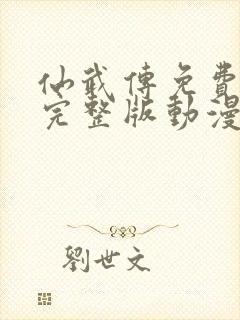 仙武傳免費
完整版動漫
劉世文